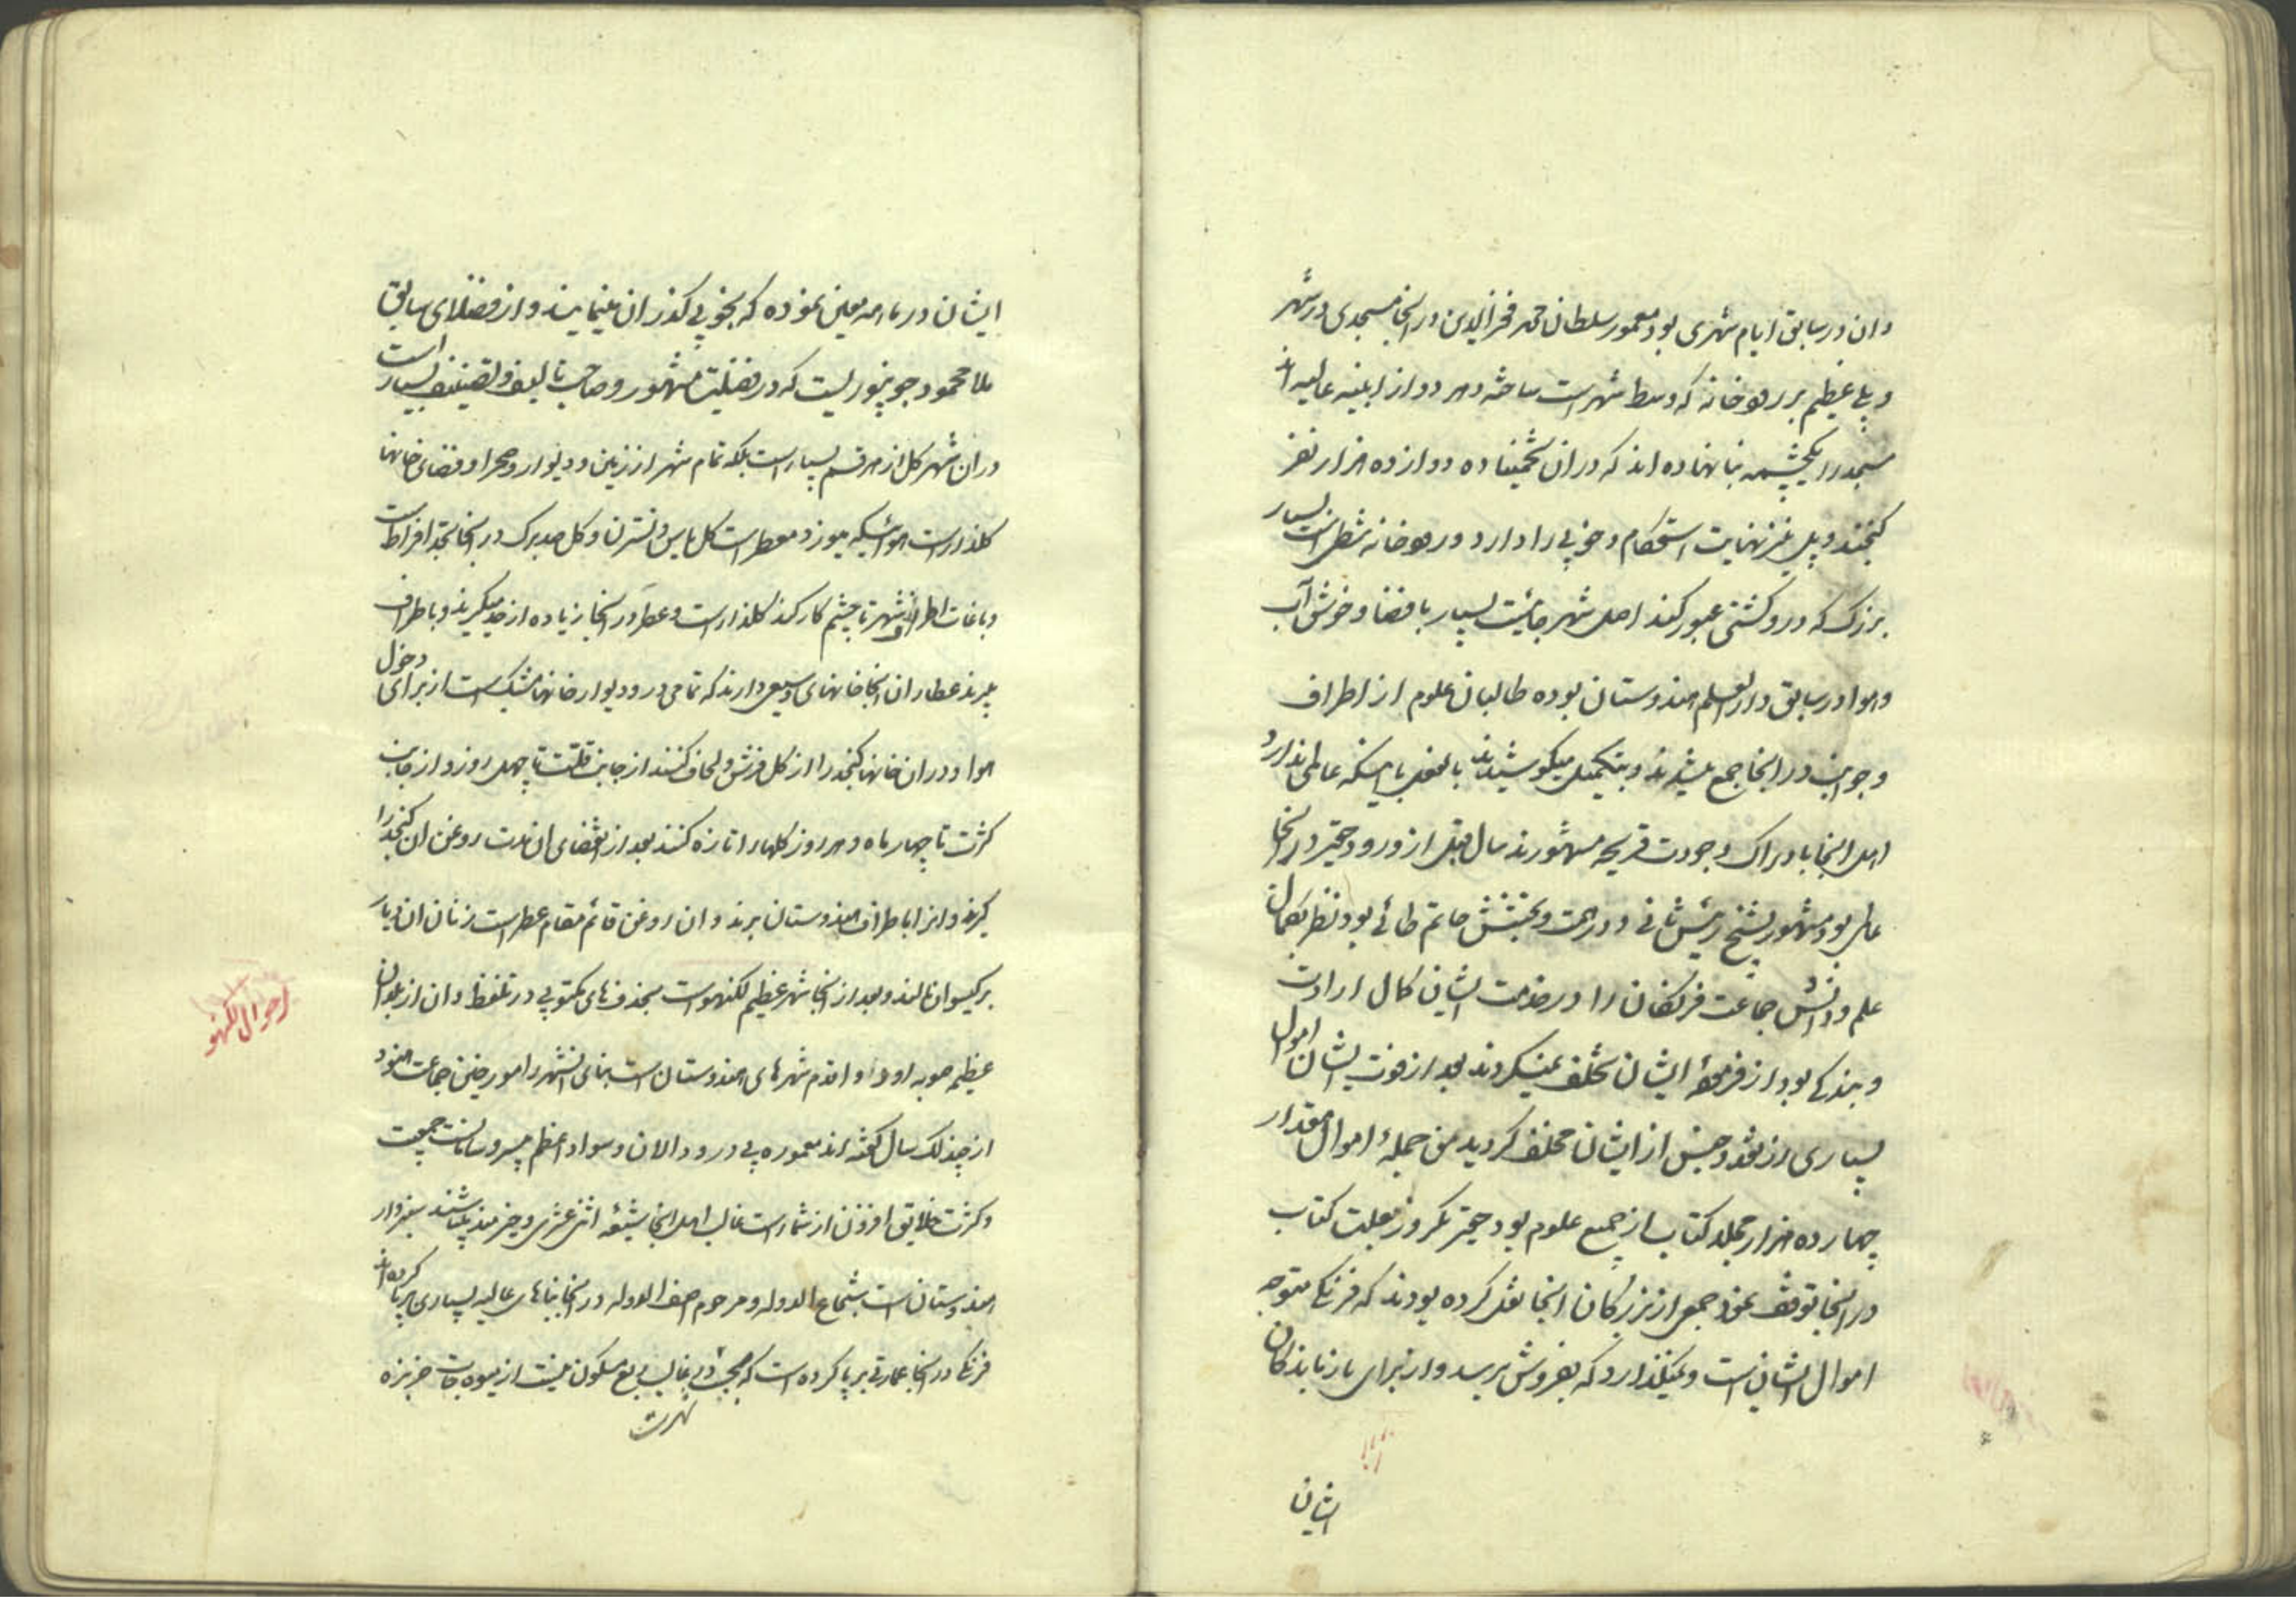 وان در سابق ایام شهری بود معمور سلطان محمد فخرالدین در انجا مسجدی در شهر
و پلی عظیم بر رودخانه که وسط شهر است ساخته و هر دو از ابنیه عالیه اند
مسجد را یکچشمه بنا نهاده اند که در ان تخمینا ده دوازده هزار نفر
کنجند و پل نیز نهایت استحکام و خوبی را دارد و رودخانه شطی است بسیار
بزرک که در و کشتی عبور کند اصل شهر جائیست بسیار با فضا و خوش آب
و هوا در سابق دار العلم هندوستان بوده طالبان علوم از اطراف
و جوانب در انجا جمع میشدند و بتکمیل میکوشیدند بالفعل با اینکه عالمی ندارد
اهل انجا بادراک و جودت قریحه مشهورند سال قبل از ورود حقیر در انجا
عالمی بود مشهور بشیخ رئیس ثانی و در همت و بخشش حاتم طائی بود نظر بکمال
علم و دانش جماعت فرنکان را در خدمت ایشان کمال ارادت
و بندکی بود از فرموده ایشان تخلف نمیکردند بعد از فوت ایشان اموال
بسیاری از نقد و جنس از ایشان مخلف کردید من جمله اموال مقدار
چهارده هزار جلد کتاب از جمیع علوم بود حقیر یکروز بعلت کتاب
در انجا توقف نمود جمعی از بزرکان انجا نقل کرده بودند که فرنکی متوجه
اموال ایشان است و نمیکذارد که بفروش برسد و از برای بازماندکان
ایشان
ایشان در ماهه معین نموده که بخوبی کذران مینمایند و از فضلای سابق
ملا محمود جونپوریست که در فضیلت مشهور و صاحب تالیف و تصنیف بسیار است
در ان شهر کل از هر قسم بسیار است بلکه تمام شهر از زمین و دیوار و صحرا و فضای خانها
کلذار است هوائیکه میوزد معطر است کل یاس و نسترن و کل صد برک در انجا بحد افراط است
و باغات اطراف شهر تا چشم کار کند کلذار است و عطر در انجا زیاده از حد میکیرند و باطراف
میبرند عطاران انجا خانهای وسیع دارند که تمامی در و دیوار خانها مشبک است از برای دخول
هوا و در ان خانها کنجد را از کل فرش و لحاف کنند از جانب قلت تا چهل روز و از جانب
کثرت تا چهار ماه و هر روز کلها را تازه کنند بعد از انقضای ان مدت روغن ان کنجد را
کیرند و انرا باطراف هندوستان برند و ان روغن قائم مقام عطر است زنان ان دیار
بر کیسوان مالند و بعد از انجا شهر عظیم لکنهو است بحذف های مکتوبی در تلفظ و ان از بلدان
عظیم صوبه اوده و اقدم شهرهای هندوستان است بنای انشهر را مورخین جماعت هنود
از چند لک سال کفته اند معموره بی در و دالان و سواد اعظم بیسر و سامانست جمعیت
و کثرت خلایق افزون از شمار است غالب اهل انجا شیعه اثنی عشری و خیرمند میباشند سبزوار
هندوستان است شجاع الدوله و مرحوم اصف الدوله در انجا بناهای عالیه بسیاری برپا کرده اند
فرنکی در انجا عمارتی برپا کرده است که بخوبی غالب ربع مسکون نیست از میوه جات خربزه
احوال لکهنو